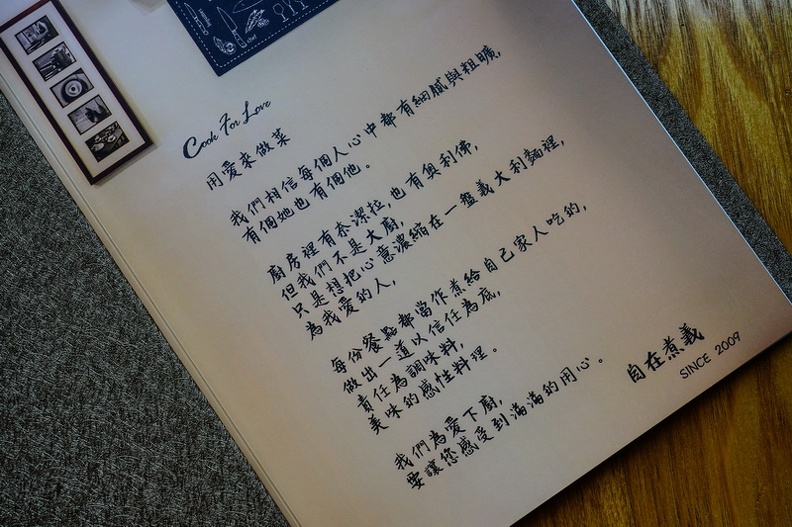 Cook For Love
用愛來做菜
我們相信每個人心中都有細膩與粗曠,
有個她也有個他。
廚房裡有泰潔拉,也有奧利佛,
但我們不是大廚,
只是想把心意濃縮在一盤義大利麵裡,
為我愛的人,
每份餐點都當作煮給自己家人吃的,
做出一道以信任為底,
責任為調味料,
美味的感性料理。
我們為愛下廚,
要讓您感受到滿滿的用心。
自在煮義
SINCE 2009